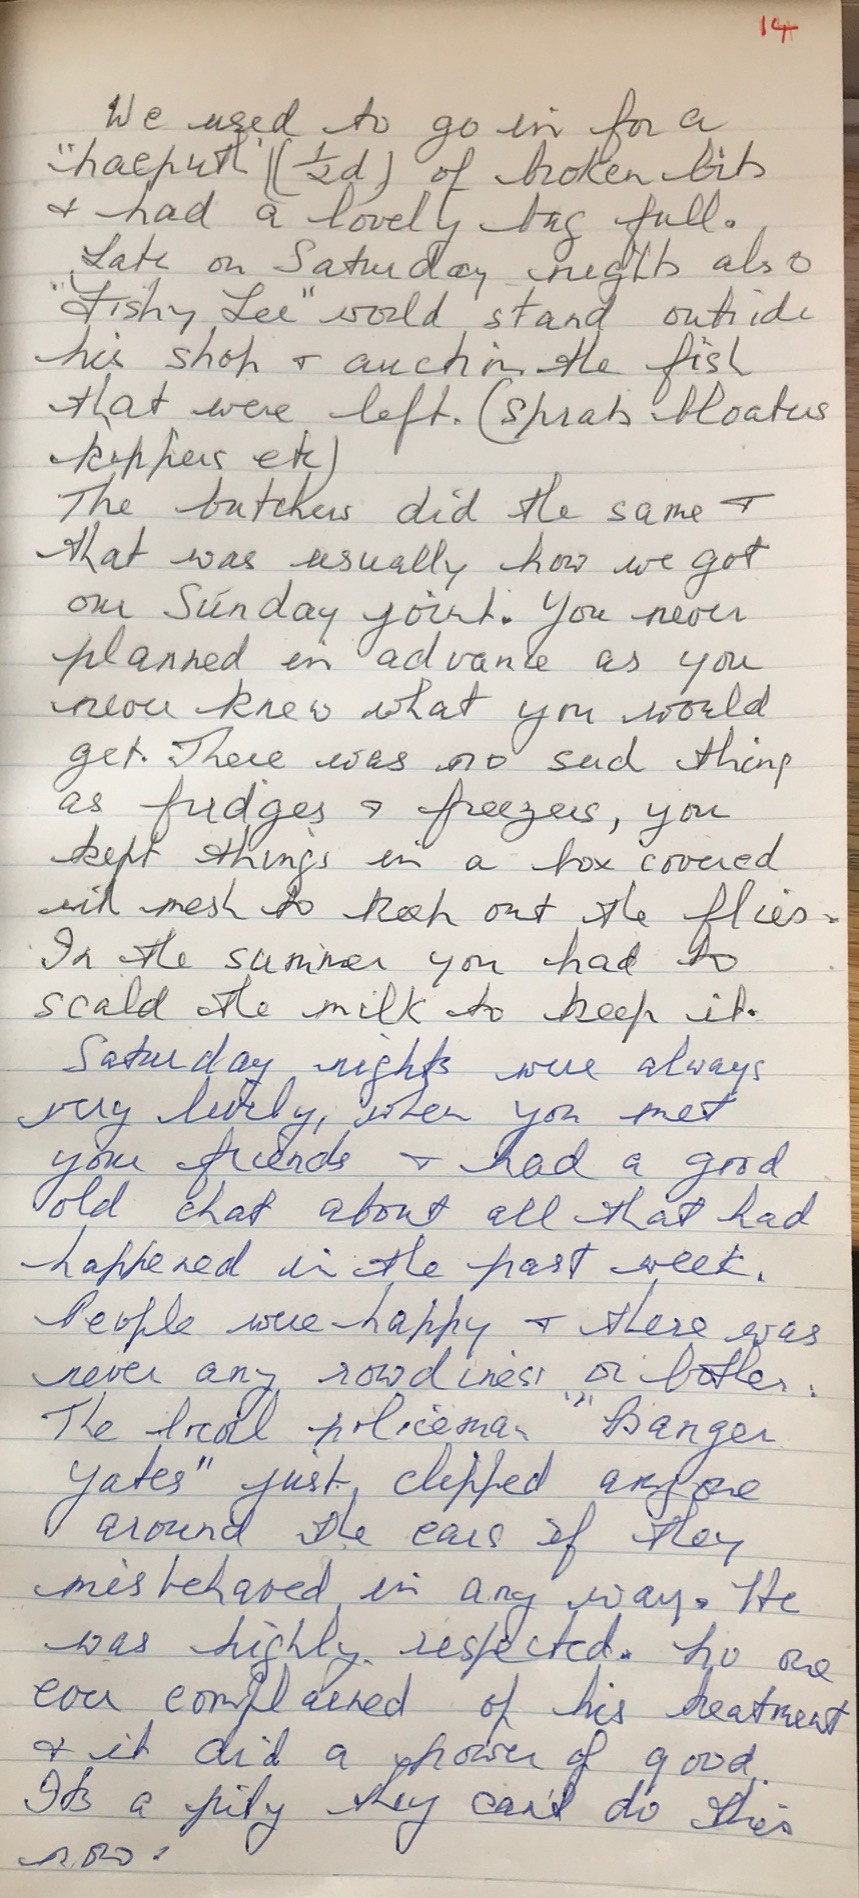 14
We used to go in for a
"haeputh" (½d) of broken bits
& had a lovely bag full.
Late on Saturday nights also
"Fishy Lee" would stand outside
his shop & auction the fish
that were left. (Sprats bloaters
kippers etc)
The butchers did the same &
that was usually how we got
our Sunday joint. You never
planned in advance as you
never knew what you would
get. There was no such thing
as fridges & freezers, you
kept things in a box covered
with mesh to keep out the flies.
In the summer you had to
scald the milk to keep it.
Saturday nights were always
very lively, when you met
your friends & had a good
old chat about all that had
happened in the past week.
People were happy & there was
never any rowdiness or bother.
The local policeman "Banger
Yates" just clipped anyone
around the ears if they
misbehaved in any way. He
was highly respected. No one
ever complained of his treatment
& it did a power of good.
Its a pity they can't do this
now.